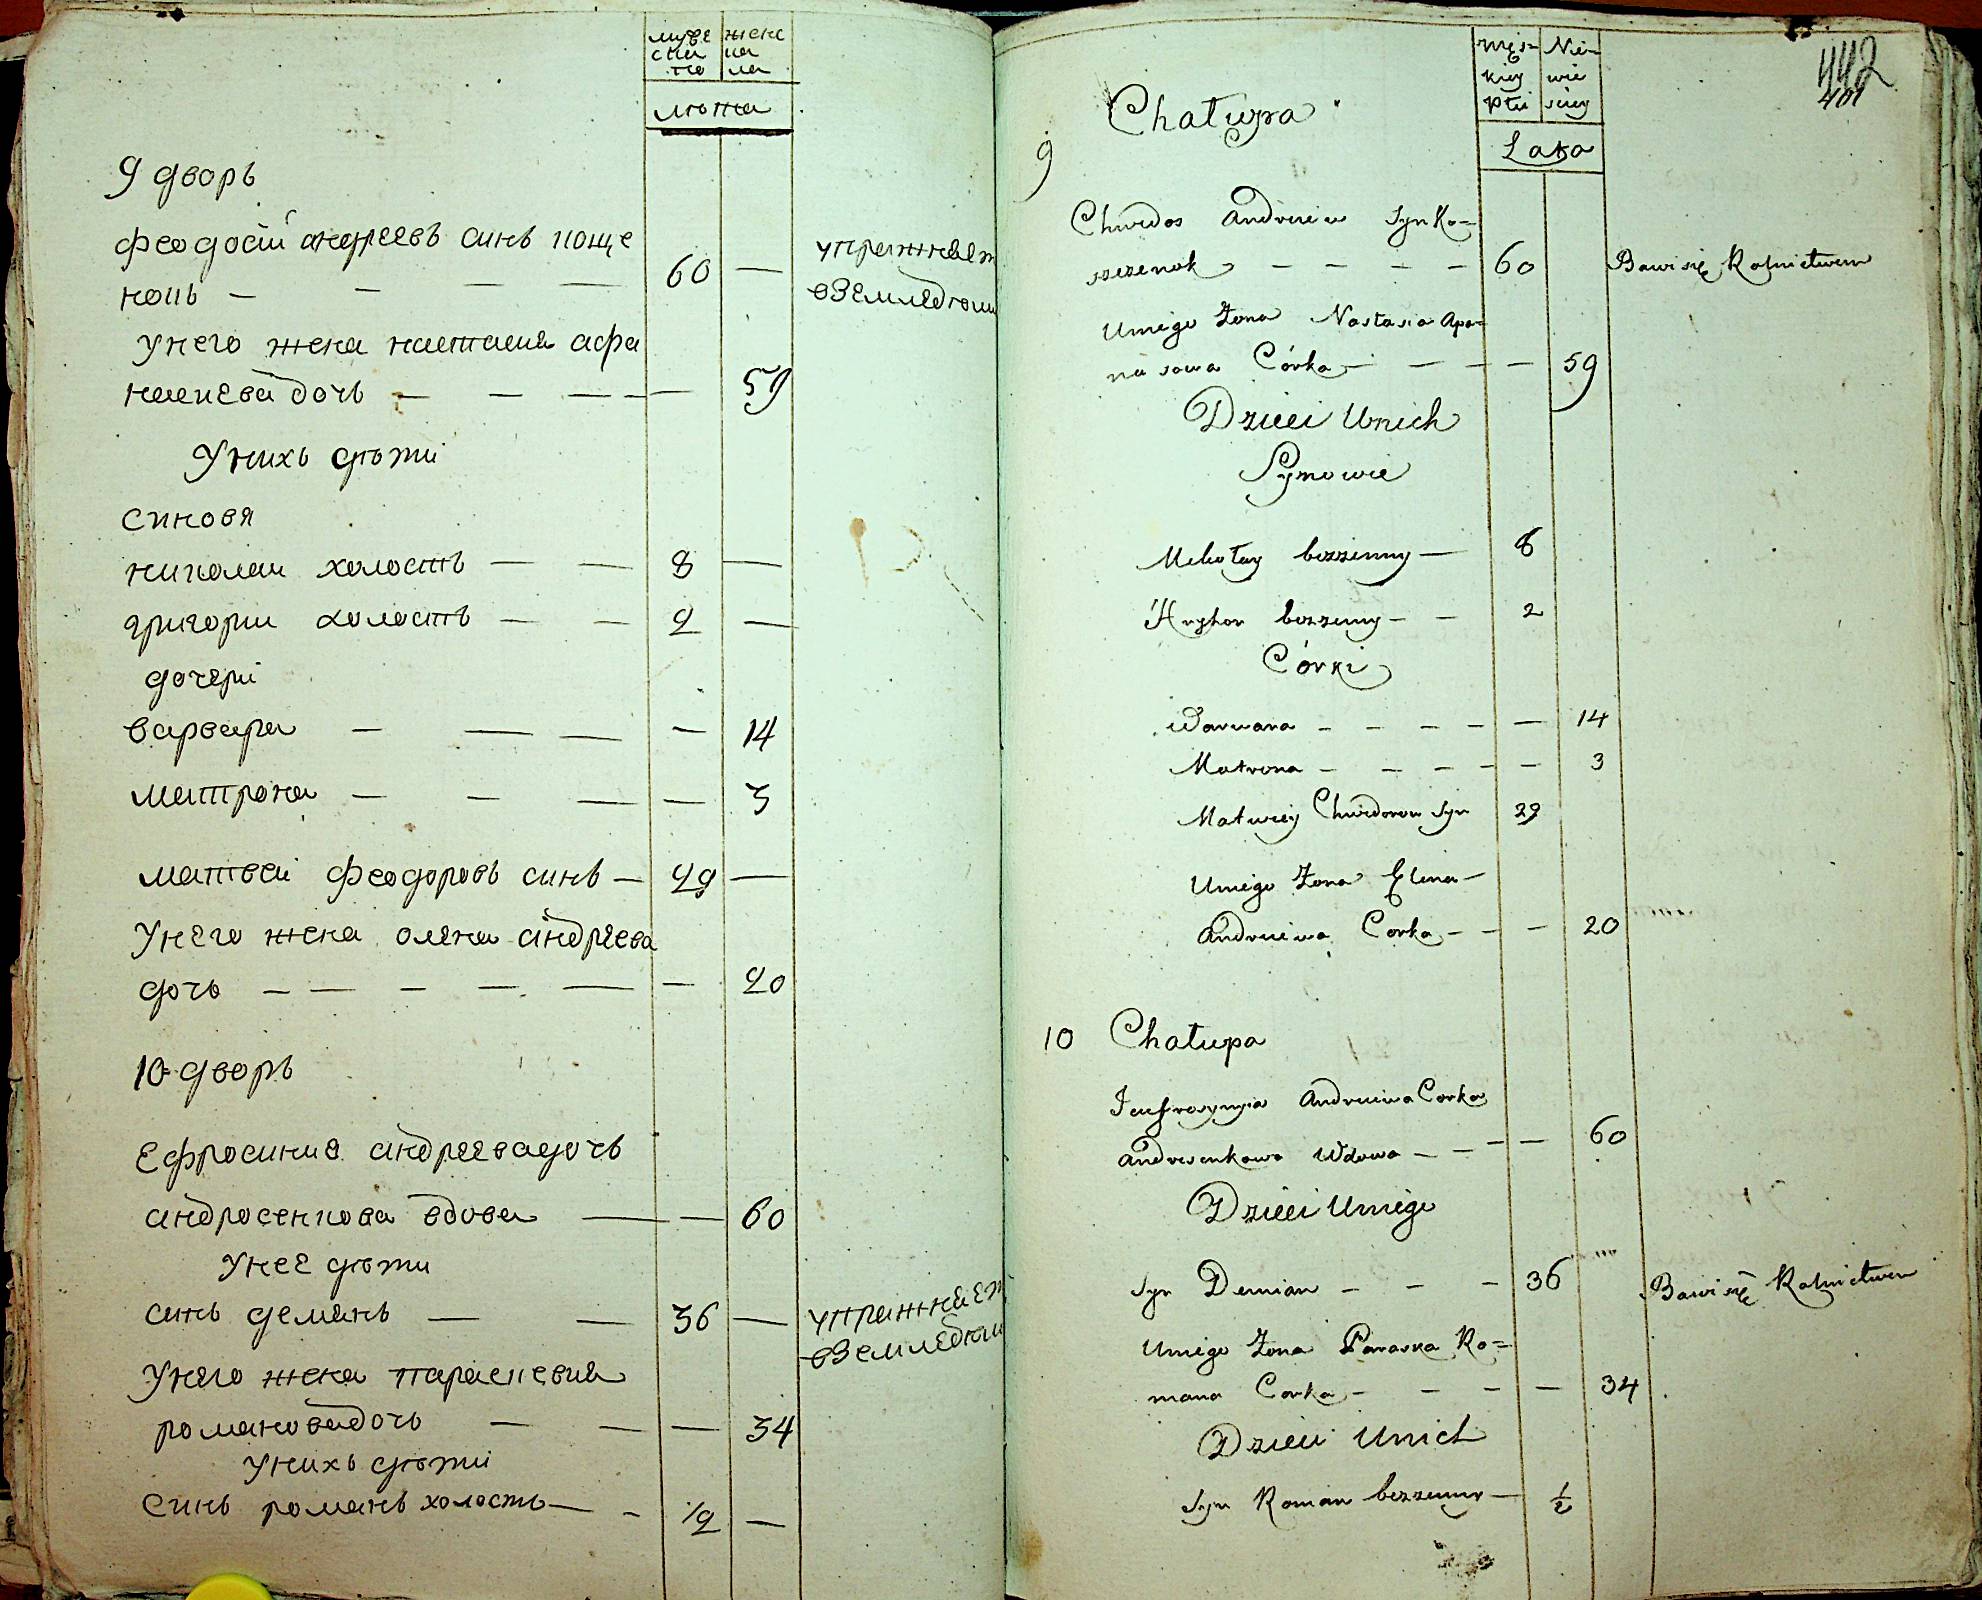 муже жене
ска на
го ла
люта
9 дворъ
феодосіи андреевъ синъ коще
нокъ
60
упражнает
в земледюли
унего жена настасия афа
насиева дочь
59
унихъ дѣти
синовя
николаи холостъ 8
григори холостъ 2
дочері
варвара 14
матрона 3
матвеі феодоровъ синъ 29
унего жена олена андреева
дочь 20
10 дворъ
ефросиния андреевадочъ
андросенкова вдова 60
унее дѣти
синъ деманъ 36
упражнает
в земледюли
унего жена параскевия
романовадочъ 34
унихъ дѣти
синъ романъ холостъ 1/2
męs= Nie=
kiey wie
płci sciey
Lata
442
401
9 Chałupa
Chwedos Andreiew Syn Ko=
szczenok 60 Bawi się Rolnictwem
Uniego Żona Nastasia Apa=
nasowa Córka 59
Dzieci Unich
Synowie
Mikołay bezzenny 8
Hryhor bezzenny 2
Córki
Warwara 14
Matrona 3
Matwiey Chwedorow Syn 29
Uniego Żona Elena
Andreiewa Corka 20
10 Chałupa
Jeufrosynyia Andreiewa Corka
Androsenkowa Wdowa 60
Dzieci Uniego
Syn Demian 36 Bawi się Rolnictwem
Uniego Żona Paraska Ro=
mana Corka 34
Dzieci Unich
Syn Roman bezzenny 1/2